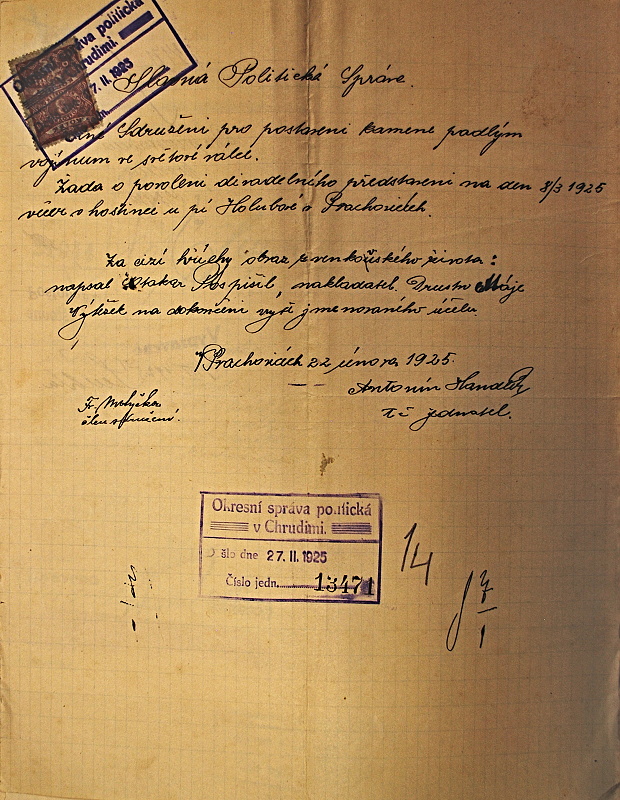 Okresní správa politická
v Chrudimi.
27. II. 1925
Slavná Politická Správo.
Sdružení pro postavení kamene padlým
vojínum ve světové válce.
Žada o povolení divadelního představení na den 8/3 1925
večer v hostinci u pí Holubové v Prachovicích.
Za cizí hřichy obraz z venkovského života:
napsal Otakar Pospíšil, nakladatel. Drustvo Máje
Výtěžek na dokončení vyší jmenovaného účelu
V Prachovicích 22 února 1925.
Antonín
Fr.
člen sdružení.
t.č. jednatel.
Okresní správa politická
v Chrudimi.
Došlo dne 27. II. 1925
Číslo jedn. 13471
1/4
7
1